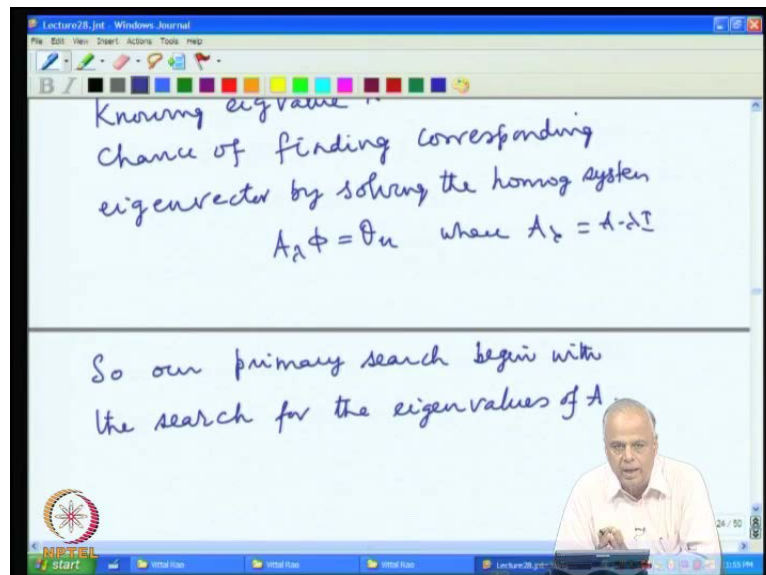 Lecture28.jnt - Windows Journal
File Edit View Insert Actions Tools Help
B I
Knowing eigvalue
chance of finding corresponding
eigenvector by solving the homog system
A_λ ϕ = θ_n where A_λ = A-λI
So our primary search begin with
the search for the eigenvalues of A
24 / 50
NPTEL
start Vittal Rao Vittal Rao Vittal Rao Lecture28.jnt